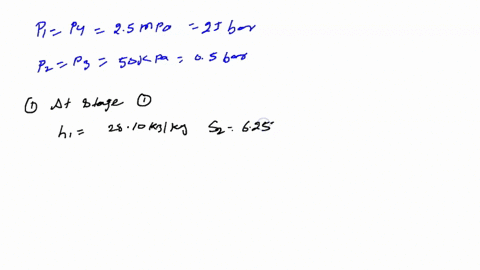 P1 = P4 = 2.5 mpa = 25 bar
P2 = P3 = 50 kPa = 0.5 bar
① At stage ①
h1 = 28.10 kg/kg S2 = 6.25